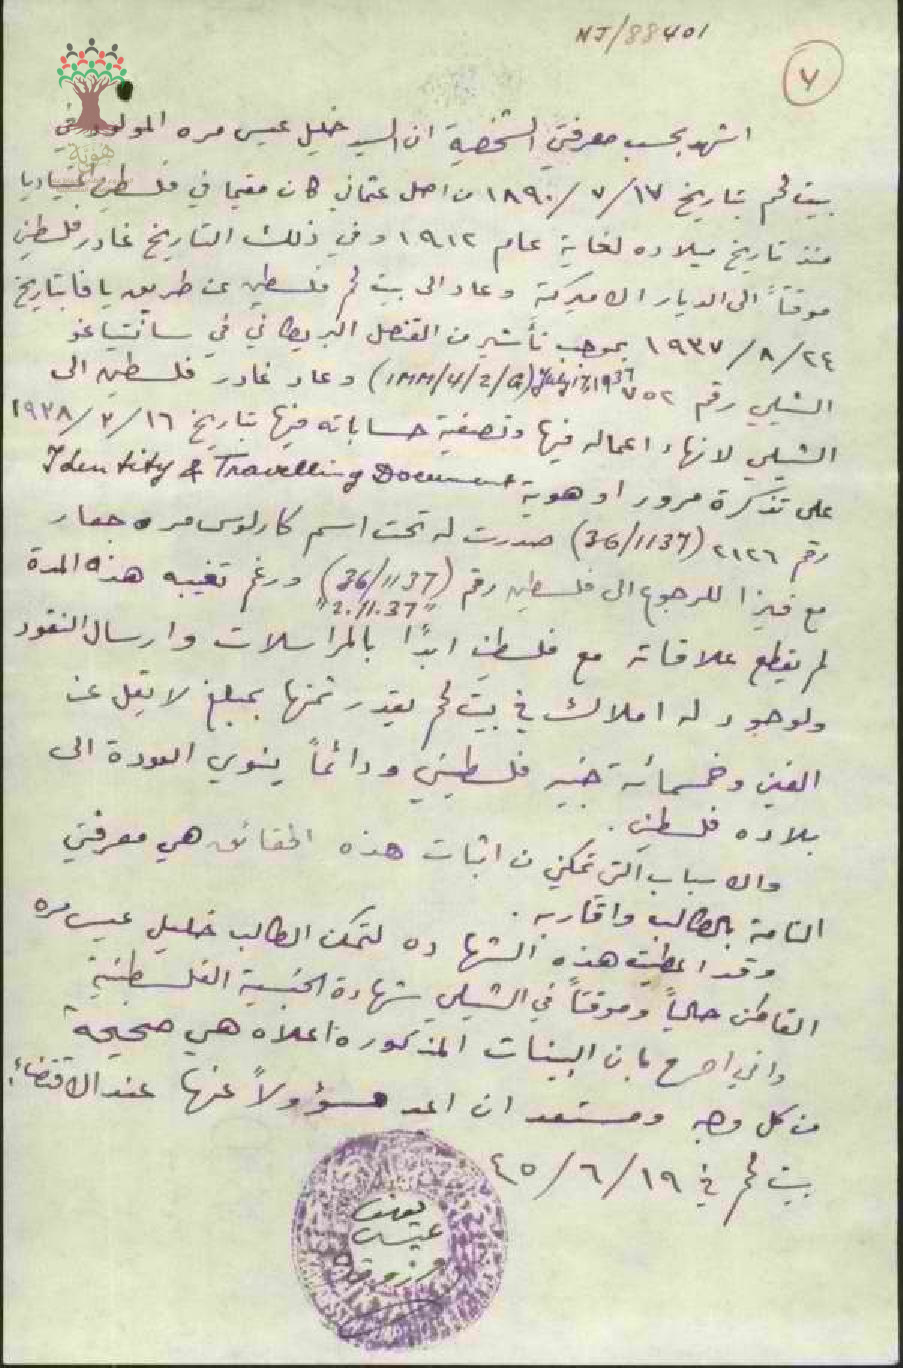 NJ/88401
٧
هوية
اشهد بحسب معرفتي الشخصية ان السيد خليل عيسى مره المولود في
بيت لحم بتاريخ ١٧/ ٧/ ١٨٩٠ من اصل عثماني كان مقيما في فلسطين اعتياديا
منذ تاريخ ميلاده لغاية عام ١٩١٢ وفي ذلك التاريخ غادر فلسطين
موقتاً الى الديار الاميركية وعاد الى بيت لحم فلسطين عن طريق يافا بتاريخ
٢٤/ ٨/ ١٩٣٧ بموجب تأشير من القنصل البريطاني في سانتياغو
الشيلي رقم ٧٥٢ July 17, 1937 (IMM/4/2/a) وعاد غادر فلسطين الى
الشيلي لانهاء اعماله فيها وتصفية حساباته فيها بتاريخ ١٦/ ٢/ ١٩٣٨
على تذكرة مرور او هوية Identity & Travelling Document
رقم ٢١٢٦ (36/1137) صدرت له تحت اسم كارلوس مره جعار
مع فيزا للرجوع الى فلسطين رقم (36/1137) ورغم تغيبه هذه المدة
"2.11.37"
لم يقطع علاقاته مع فلسطين ابدًا بالمراسلات وارسال النقود
ولوجود له املاك في بيت لحم يقدر ثمنها بمبلغ لا يقل عن
الفين وخمسمائة جنيه فلسطيني ودائماً ينوي العودة الى
بلاده فلسطين.
والاسباب التي تمكني من اثبات هذه الحقائق هي معرفتي
التامة بالطالب واقاربه.
وقد اعطيت هذه الشهاده لتمكن الطالب خليل عيسى مره
القاطن حالياً وموقتاً في الشيلي شهادة الجنسية الفلسطينية
واني اصرح بان البينات المذكوره اعلاه هي صحيحة
من كل وجه ومستعد ان اعد مسؤولاً عنها عند الاقتضاء.
بيت لحم في ١٩/ ٦/ ٤٥
عيسى